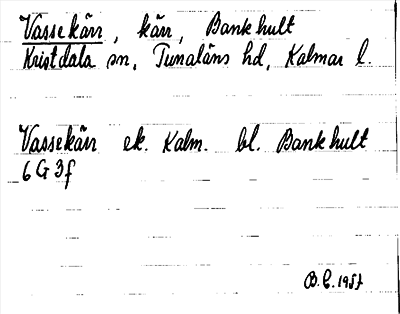 Vassekärr, kärr, Bankhult
Kristdala sn, Tunaläns hd, Kalmar l.
Vassekärr ek. Kalm. bl. Bankhult
6G3f